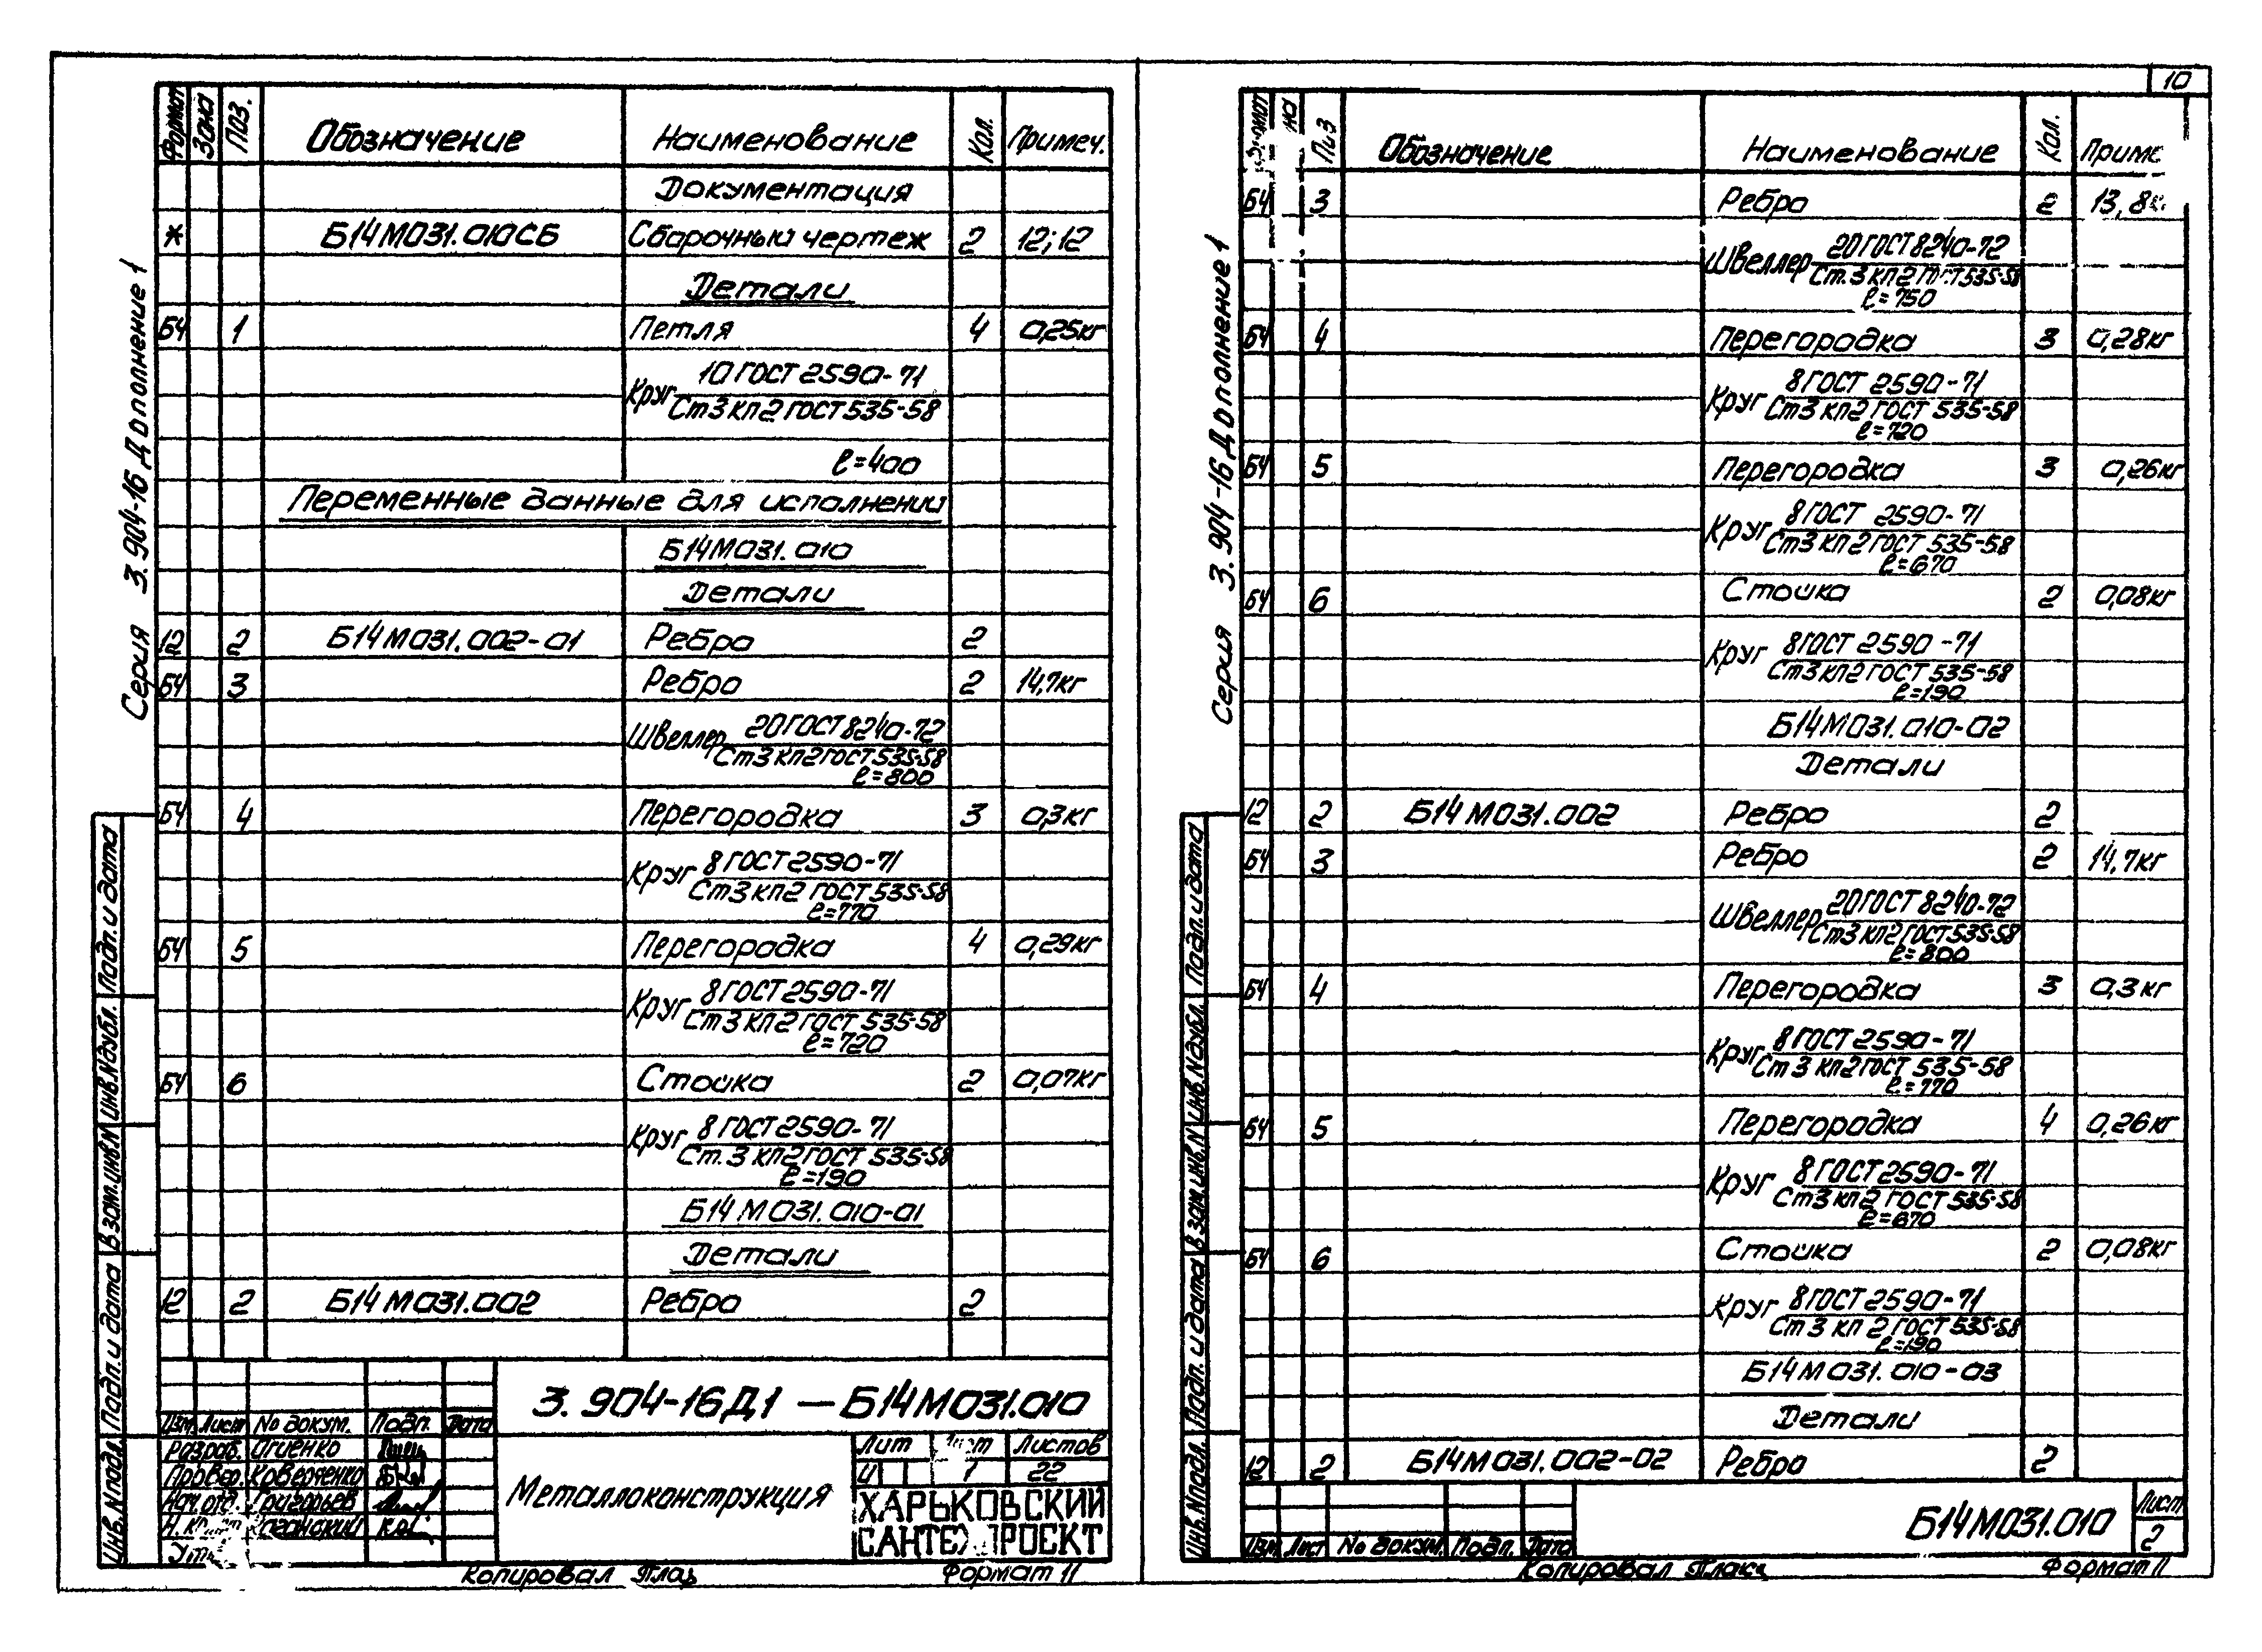 10
Серия 3.904-16 Дополнение 1
Формат Зона Поз. Обозначение Наименование Кол. Примеч.
Документация
* Б14М031.010СБ Сборочный чертеж 2 12;12
Детали
БЧ 1 Петля 4 0,25кг
Круг 10 ГОСТ 2590-71
Ст3 кп2 ГОСТ 535-58
ℓ=400
Переменные данные для исполнений
Б14М031.010
Детали
12 2 Б14М031.002-01 Ребро 2
БЧ 3 Ребро 2 14,7кг
Швеллер 20 ГОСТ 8240-72
Ст3 кп2 ГОСТ 535-58
ℓ=800
БЧ 4 Перегородка 3 0,3кг
Круг 8 ГОСТ 2590-71
Ст3 кп2 ГОСТ 535-58
ℓ=770
БЧ 5 Перегородка 4 0,29кг
Круг 8 ГОСТ 2590-71
Ст3 кп2 ГОСТ 535-58
ℓ=720
БЧ 6 Стойка 2 0,07кг
Круг 8 ГОСТ 2590-71
Ст.3 кп2 ГОСТ 535-58
ℓ=190
Б14М031.010-01
Детали
12 2 Б14М031.002 Ребро 2
3.904-16Д1 — Б14М031.010
Изм. Лист № докум. Подп. Дата
Разраб. Огиенко
Провер. Коверченко
Нач.отд. Григорьев
Металлоконструкция
Лит Лист Листов
И 1 22
ХАРЬКОВСКИЙ
САНТЕХПРОЕКТ
Инв.Nподл. Подп. и дата Взам.инв.N Инв.Nдубл. Подп. и дата
Копировал Формат 11
Серия 3.904-16 Дополнение 1
Поз Обозначение Наименование Кол. Приме
БЧ 3 Ребро 2 13,8кг
Швеллер 20 ГОСТ 8240-72
Ст.3 кп2 ГОСТ 535-58
ℓ=750
БЧ 4 Перегородка 3 0,28кг
Круг 8 ГОСТ 2590-71
Ст3 кп2 ГОСТ 535-58
ℓ=720
БЧ 5 Перегородка 3 0,26кг
Круг 8 ГОСТ 2590-71
Ст3 кп2 ГОСТ 535-58
ℓ=670
БЧ 6 Стойка 2 0,08кг
Круг 8 ГОСТ 2590-71
Ст3 кп2 ГОСТ 535-58
ℓ=190
Б14М031.010-02
Детали
12 2 Б14М031.002 Ребро 2
БЧ 3 Ребро 2 14,7кг
Швеллер 20 ГОСТ 8240-72
Ст3 кп2 ГОСТ 535-58
ℓ=800
БЧ 4 Перегородка 3 0,3кг
Круг 8 ГОСТ 2590-71
Ст3 кп2 ГОСТ 535-58
ℓ=770
БЧ 5 Перегородка 4 0,26кг
Круг 8 ГОСТ 2590-71
Ст3 кп2 ГОСТ 535-58
ℓ=670
БЧ 6 Стойка 2 0,08кг
Круг 8 ГОСТ 2590-71
Ст3 кп2 ГОСТ 535-58
ℓ=190
Б14М031.010-03
Детали
12 2 Б14М031.002-02 Ребро 2
Изм Лист № докум. Подп. Дата
Б14М031.010
Лист
2
Инв.Nподл. Подп. и дата Взам.инв.N Инв.Nдубл. Подп. и дата
Копировал Формат 11